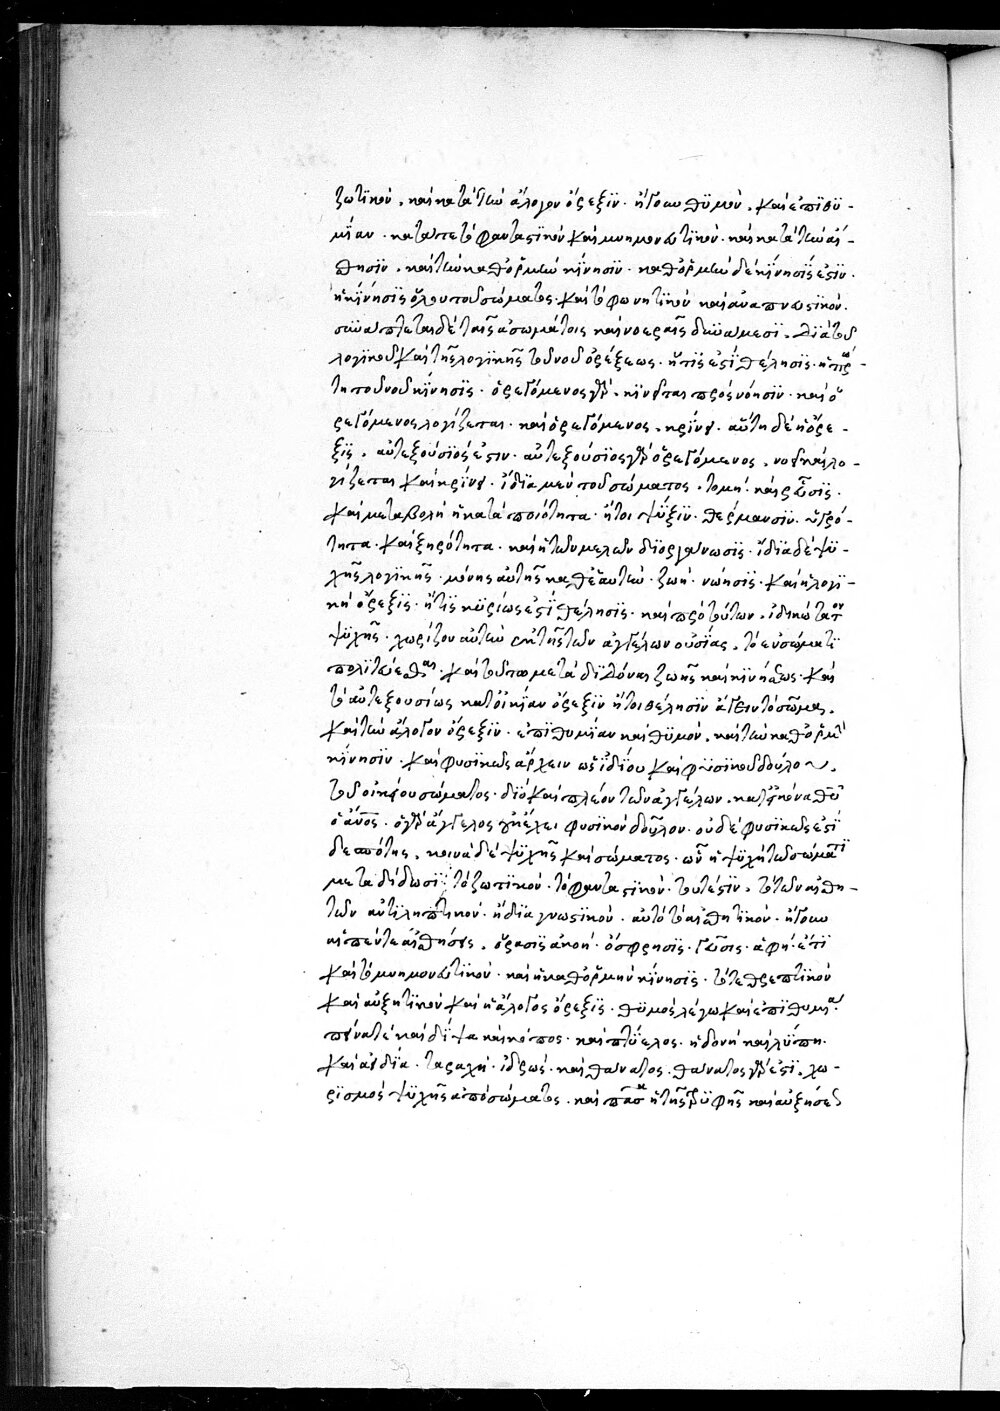 ζωτικόν· καὶ κατὰ τὴν ἄλογον ὄρεξιν· ἤγουν θυμὸν· καὶ ἐπιθυ-
μίαν· κατά τε τὸ φανταστικὸν καὶ μνημονευτικόν· καὶ κατὰ τὴν αἴ-
θησιν· καὶ τὴν καθ' ὁρμὴν κίνησιν· καθ' ὁρμὴν δὲ κίνησίς ἐστιν·
ἡ κίνησις ὅλου τοῦ σώματος· καὶ τὸ φωνητικὸν καὶ ἀναπνευστικόν.
συνάπτεται δὲ ταῖς ἀσωμάτοις καὶ νοεραῖς δυνάμεσι· διὰ τοῦ
λογικοῦ καὶ τῆς λογικῆς τοῦ νοῦ ὀρέξεως· ἥτις ἐστὶ θέλησις· ἡ πρώ-
τη τοῦ νοῦ κίνησις· ὀρεγόμενος γὰρ· κινεῖται πρὸς νόησιν· καὶ ὀ
ρεγόμενος λογίζεται· καὶ ὀρεγόμενος· κρίνει· αὕτη δὲ ἡ ὄρε-
ξις· αὐτεξούσιός ἐστιν· αὐτεξούσιος γὰρ ὀρεγόμενος· νοεῖ καὶ λο-
γίζεται καὶ κρίνει· ἴδια μὲν τοῦ σώματος· τομή· καὶ ῥεῦσις·
καὶ μεταβολὴ ἡ κατὰ ποιότητα· ἤτοι ψύξιν· θέρμανσιν· ὑγρό-
τητα· καὶ ξηρότητα· καὶ ἡ τῶν μελῶν διοργάνωσις· ἴδια δὲ ψυ-
χῆς λογικῆς· μόνης αὐτῆς καθ' ἑαυτὴν· ζωή· νόησις· καὶ ἡ λογι-
κὴ ὄρεξις· ἥτις κυρίως ἐστὶ θέλησις· καὶ πρὸ τούτων· ἰδικώτατον
ψυχῆς· χωρίζον αὐτὴν ἐκ τῆς τῶν ἀγγέλων οὐσίας· τὸ ἐν σώματι
πολιτεύεσθαι· καὶ τούτῳ μεταδιδόναι ζωῆς καὶ κινήσεως· καὶ
τὸ αὐτεξουσίως κατ' οἰκείαν ὄρεξιν ἤτοι θέλησιν ἄγειν τὸ σῶμα.
καὶ τὴν ἄλογον ὄρεξιν· ἐπιθυμίαν καὶ θυμὸν· καὶ τὴν καθ' ὁρμὴν
κίνησιν· καὶ φυσικῶς ἄρχειν ὡς ἰδίου καὶ φυσικοῦ δούλου.
τοῦ οἰκείου σώματος· διὸ καὶ πλέον τῶν ἀγγέλων· κατ' εἰκόνα θῦ
ὁ ἄνος· ὁ γὰρ ἄγγελος οὐκ ἔχει φυσικὸν δοῦλον· οὐδὲ φυσικῶς ἐστὶ
δεσπότης· κοινὰ δὲ ψυχῆς καὶ σώματος· ὧν ἡ ψυχὴ τῷ σώματι
μεταδίδωσι· τὸ ζωτικόν· τὸ φανταστικόν· τουτέστιν· τὸ τῶν αἰσθη-
τῶν ἀντιληπτικόν· ἢ διαγνωστικόν· αὐτὸ τὸ αἰσθητικόν· ἤγουν
αἱ πέντε αἰσθήσεις· ὅρασις ἀκοή· ὄσφρησις· γεῦσις· ἁφή· ἔτι
καὶ τὸ μνημονευτικόν· καὶ ἡ καθ' ὁρμὴν κίνησις· τό τε θρεπτικὸν
καὶ αὐξητικὸν καὶ ἡ ἄλογος ὄρεξις· θυμὸς λέγω καὶ ἐπιθυμία.
πεῖνά τε καὶ δίψα καὶ κόπος· καὶ πτύελος· ἡδονὴ καὶ λύπη·
καὶ ἀηδία· ταραχή· ἱδρώς· καὶ θάνατος· θάνατος γάρ ἐστι· χω-
ρισμὸς ψυχῆς ἀπὸ σώματος· καὶ πᾶσα ἡ τῆς τρυφῆς καὶ αὐξήσεως